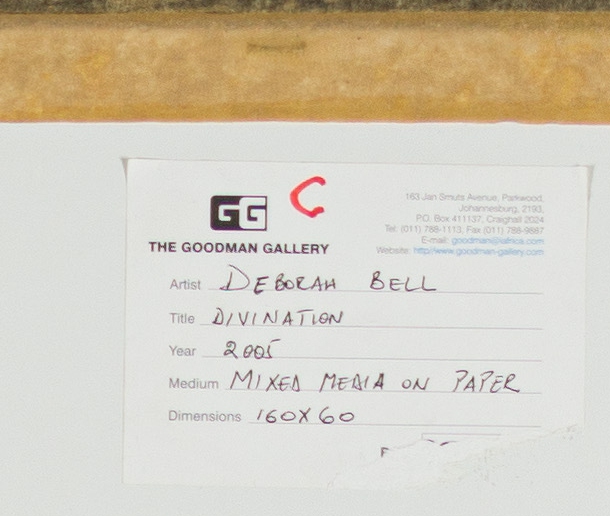 C
GG
THE GOODMAN GALLERY
163 Jan Smuts Avenue, Parkwood,
Johannesburg, 2193,
P.O. Box 411137, Craighall 2024
Tel: (011) 788-1113, Fax (011) 788-9887
E-mail: goodman@iafrica.com
Website: http://www.goodman-gallery.com
Artist DEBORAH BELL
Title DIVINATION
Year 2005
Medium MIXED MEDIA ON PAPER
Dimensions 160X60